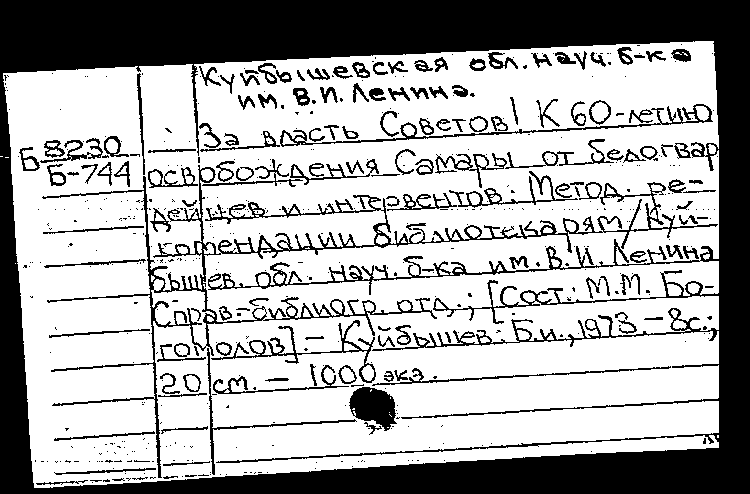 Куйбышевская обл. науч. б-ка
им. В.И. Ленина.
За власть Советов! К 60-летию
Б 8230
Б-744
освобождения Самары от белогвар
дейцев и интервентов: Метод. ре-
комендации библиотекарям/Куй-
бышев. обл. науч. б-ка им. В.И. Ленина
Справ.-библиогр. отд.; [Сост.: М.М. Бо-
гомолов]. – Куйбышев: Б.и., 1978. – 8с.;
20 см. – 1000 экз.